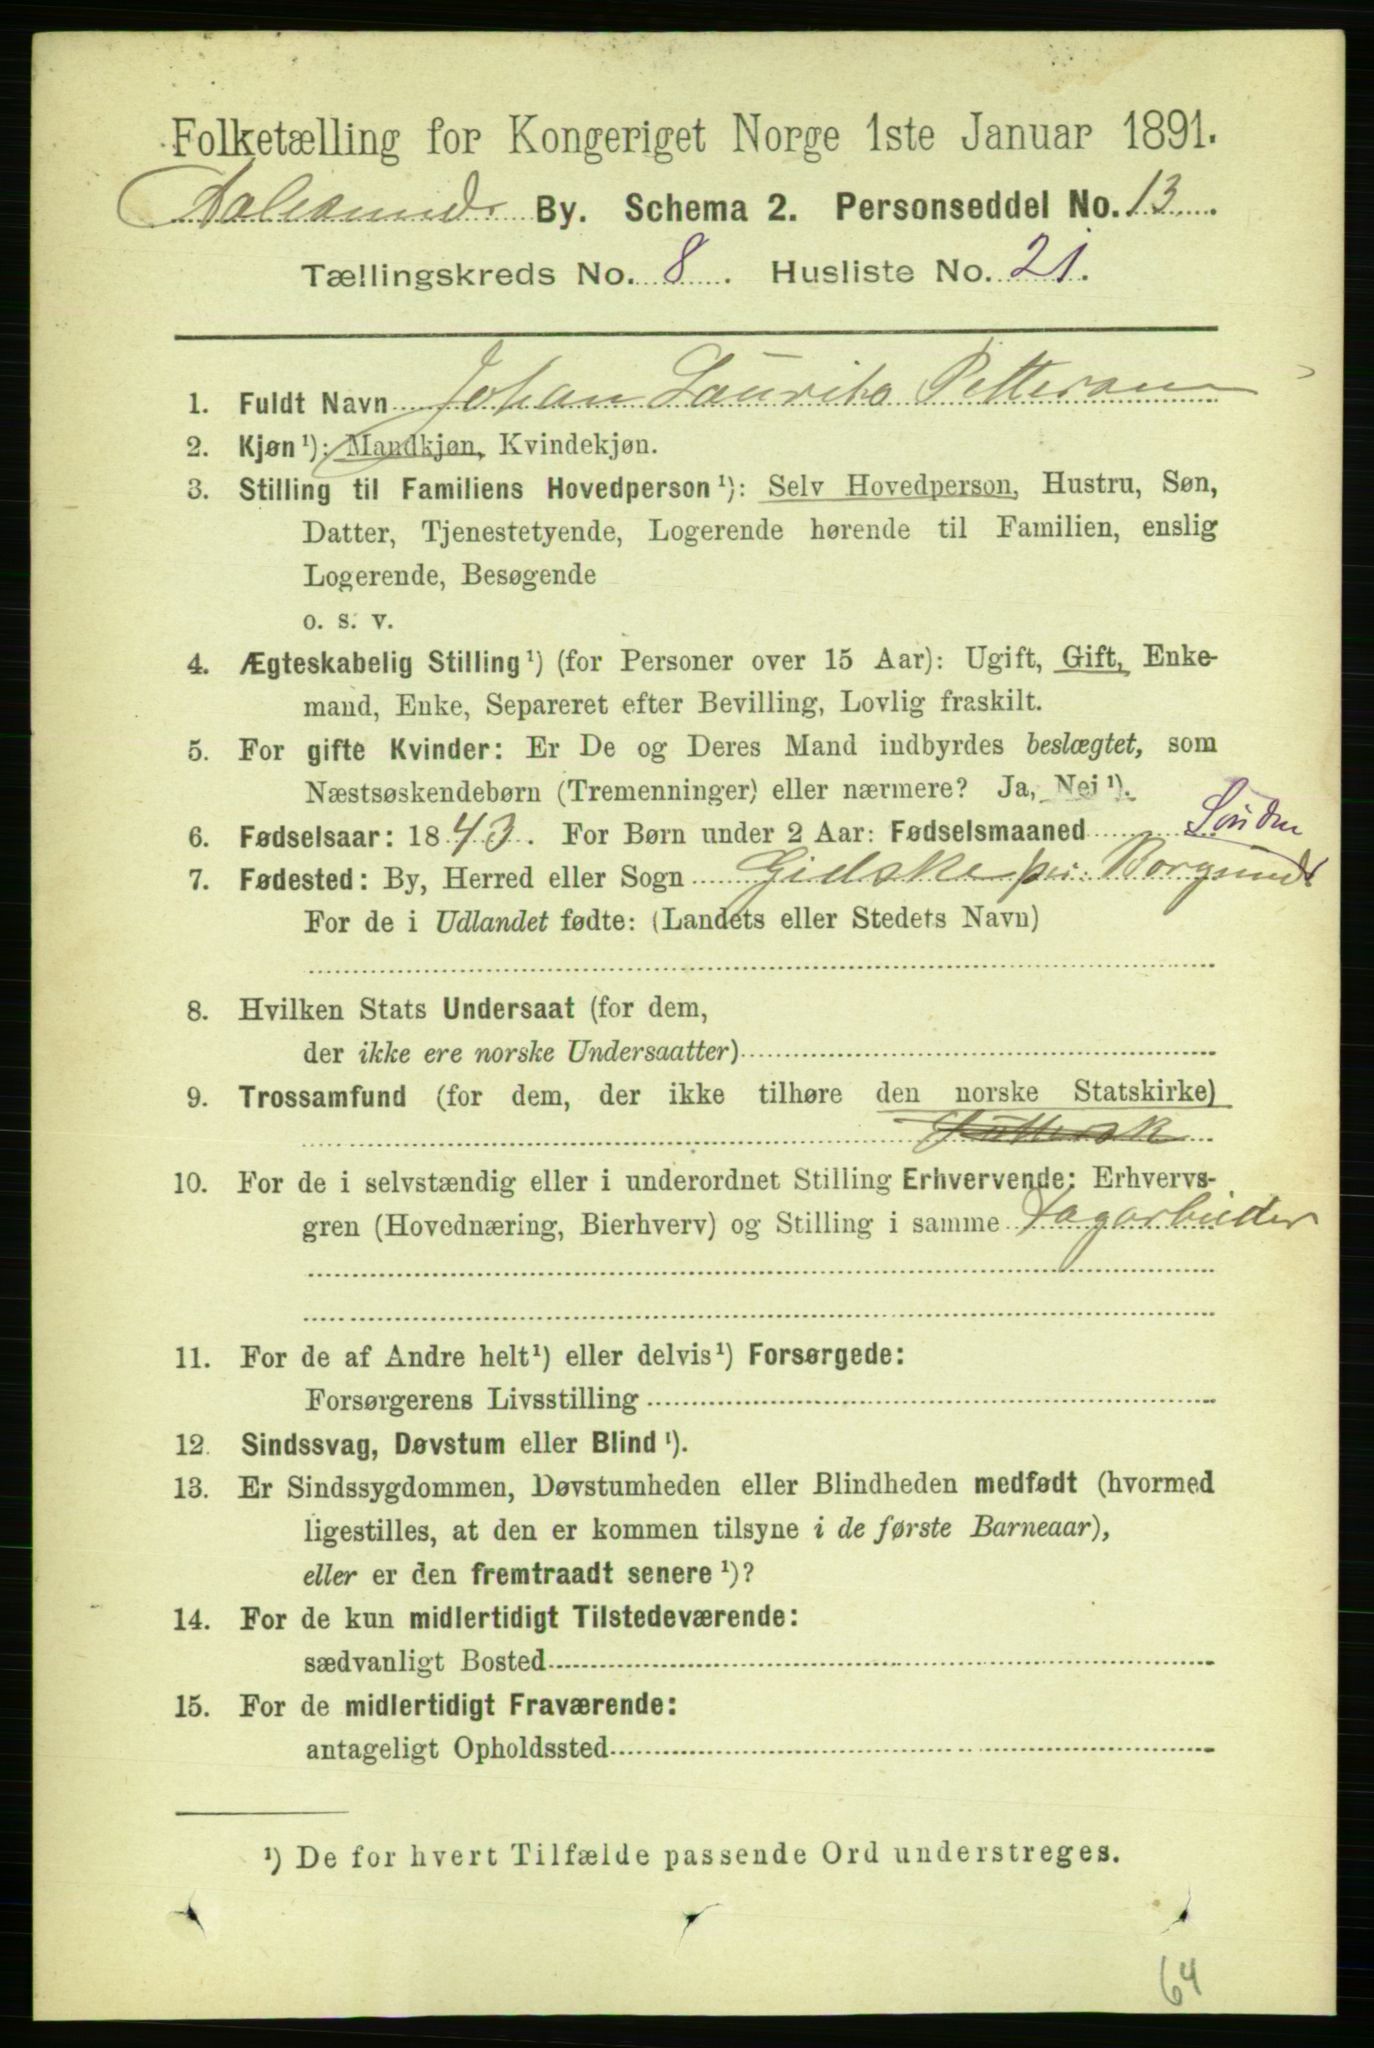 Folketælling for Kongeriget Norge 1ste Januar 1891.
Aalesunds By. Schema 2. Personseddel No. 13.
Tællingskreds No. 8. Husliste No. 21.
1. Fuldt Navn Johan Laurits Pettersen
2. Kjøn¹): Mandkjøn, Kvindekjøn.
3. Stilling til Familiens Hovedperson¹): Selv Hovedperson, Hustru, Søn,
Datter, Tjenestetyende, Logerende hørende til Familien, enslig
Logerende, Besøgende
o. s. v.
4. Ægteskabelig Stilling¹) (for Personer over 15 Aar): Ugift, Gift, Enke-
mand, Enke, Separeret efter Bevilling, Lovlig fraskilt.
5. For gifte Kvinder: Er De og Deres Mand indbyrdes beslægtet, som
Næstsøskendebørn (Tremenninger) eller nærmere? Ja, Nei¹).
6. Fødselsaar: 1843. For Børn under 2 Aar: Fødselsmaaned
7. Fødested: By, Herred eller Sogn Gidske pr. Borgund
For de i Udlandet fødte: (Landets eller Stedets Navn)
8. Hvilken Stats Undersaat (for dem,
der ikke ere norske Undersaatter)
9. Trossamfund (for dem, der ikke tilhøre den norske Statskirke)
Luttersk
10. For de i selvstændig eller i underordnet Stilling Erhvervende: Erhvervs-
gren (Hovednæring, Bierhverv) og Stilling i samme Dagarbeider
11. For de af Andre helt¹) eller delvis¹) Forsørgede:
Forsørgerens Livsstilling
12. Sindssvag, Døvstum eller Blind¹).
13. Er Sindssygdommen, Døvstumheden eller Blindheden medfødt (hvormed
ligestilles, at den er kommen tilsyne i de første Barneaar),
eller er den fremtraadt senere¹)?
14. For de kun midlertidigt Tilstedeværende:
sædvanligt Bosted
15. For de midlertidigt Fraværende:
antageligt Opholdssted
¹) De for hvert Tilfælde passende Ord understreges.
64